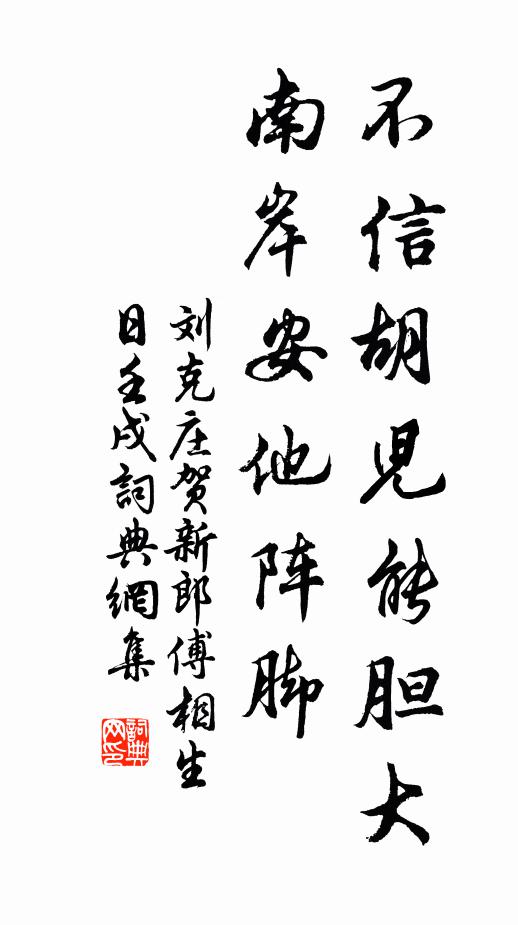 不信胡児能胆大
南岸安他阵脚
刘克庄贺新郎傅相生
日壬戌詞典網集
詞典
网印